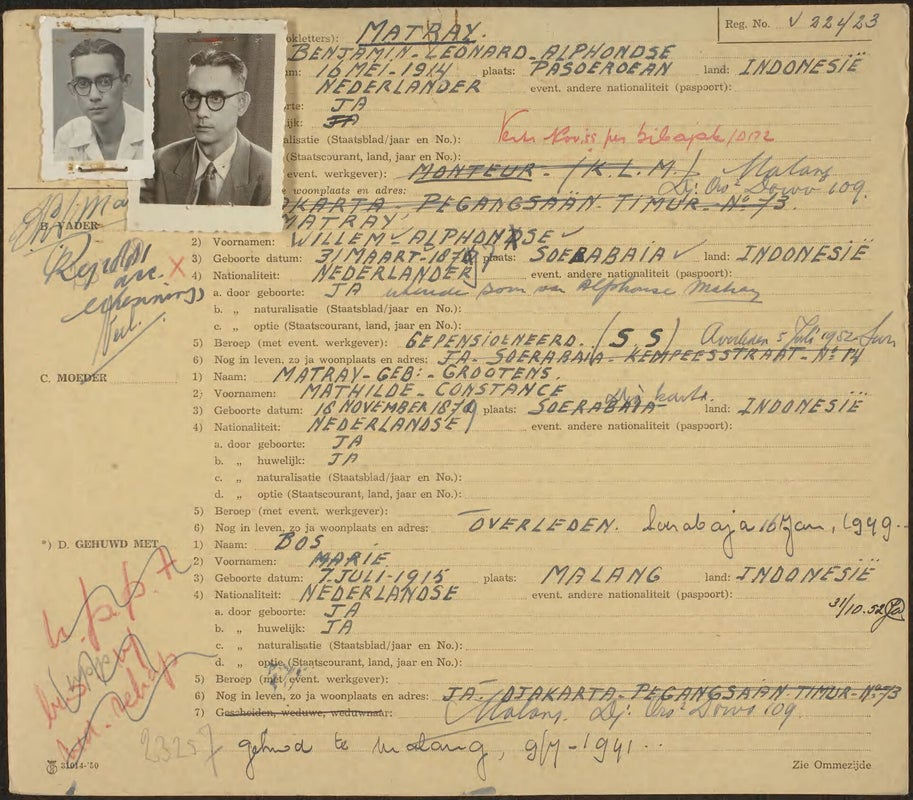 Reg. No. V 224/23
okletters): MATRAY.
BENJAMIN-LEONARD-ALPHONDSE
um: 10 MEI-1914 plaats: PASOEROEAN land: INDONESIË
NEDERLANDER event. andere nationaliteit (paspoort):
rte: JA
ijk: JA
alisatie (Staatsblad/jaar en No.):
(Staatscourant, land, jaar en No.):
event. werkgever): MONTEUR - (K.L.M.)
Malang
woonplaats en adres: Dj. Ors. Dowo 109.
KARTA - PEGANGSAÄN-TIMUR-No 73.
B. VADER MATRAY
2) Voornamen: WILLEM ALPHONSE
3) Geboorte datum: 31 MAART-187 plaats: SOERABAIA land: INDONESIË
4) Nationaliteit: NEDERLANDER event. andere nationaliteit (paspoort):
a. door geboorte: JA zoon van Alphonse Matray
b. „ naturalisatie (Staatsblad/jaar en No.):
c. „ optie (Staatscourant, land, jaar en No.):
5) Beroep (met event. werkgever): GEPENSIOENEERD. (S S) Overleden 5 Juli 1952
6) Nog in leven, zo ja woonplaats en adres: JA - SOERABAIA - KEMPEESSTRAAT - No 14
C. MOEDER 1) Naam: MATRAY-GEB:-GROOTENS.
2) Voornamen: MATHILDE-CONSTANCE
3) Geboorte datum: 18 NOVEMBER 1879 plaats: SOERABAIA land: INDONESIË
4) Nationaliteit: NEDERLANDSE event. andere nationaliteit (paspoort):
a. door geboorte: JA
b. „ huwelijk: JA
c. „ naturalisatie (Staatsblad/jaar en No.):
d. „ optie (Staatscourant, land, jaar en No.):
5) Beroep (met event. werkgever):
6) Nog in leven, zo ja woonplaats en adres: OVERLEDEN. Surabaja 16 Jan, 1949.
*) D. GEHUWD MET 1) Naam: BOS
2) Voornamen: MARIE
3) Geboorte datum: 7 JULI-1915 plaats: MALANG land: INDONESIË
4) Nationaliteit: NEDERLANDSE event. andere nationaliteit (paspoort):
a. door geboorte: JA 31/10.52
b. „ huwelijk: JA
c. „ naturalisatie (Staatsblad/jaar en No.):
d. „ optie (Staatscourant, land, jaar en No.):
5) Beroep (met event. werkgever):
6) Nog in leven, zo ja woonplaats en adres: JA - DJAKARTA-PEGANGSAÄN-TIMUR-No 73
7) Gescheiden, weduwe, weduwnaar: Malang. Dj. Ors. Dowo 109.
23257 gehuwd te Malang, 9/7-1941.
31014-'50 Zie Ommezijde